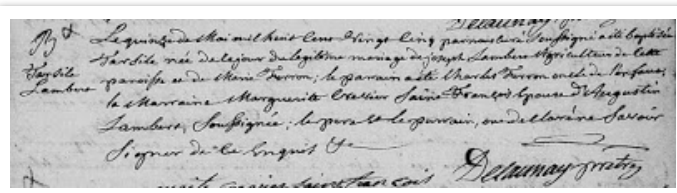 Delaunay ptre
Bt Le quinze de Mai mil huit cent vingt cinq par nous curé soussigné a été baptisée
Tarsile Tarsile née de ce jour du legitime mariage de joseph Lambert Agriculteur de cette
Lambert paroisse et de Marie Ferron; le parrain a été Charles Ferron oncle de l'enfant,
la Marraine Marguerite Saint François Epouse d'Augustin
Lambert, soussignée; le pere et le parrain, ont déclaré ne savoir
signer de ce Enquis
Delaunay ptre
Saint françois